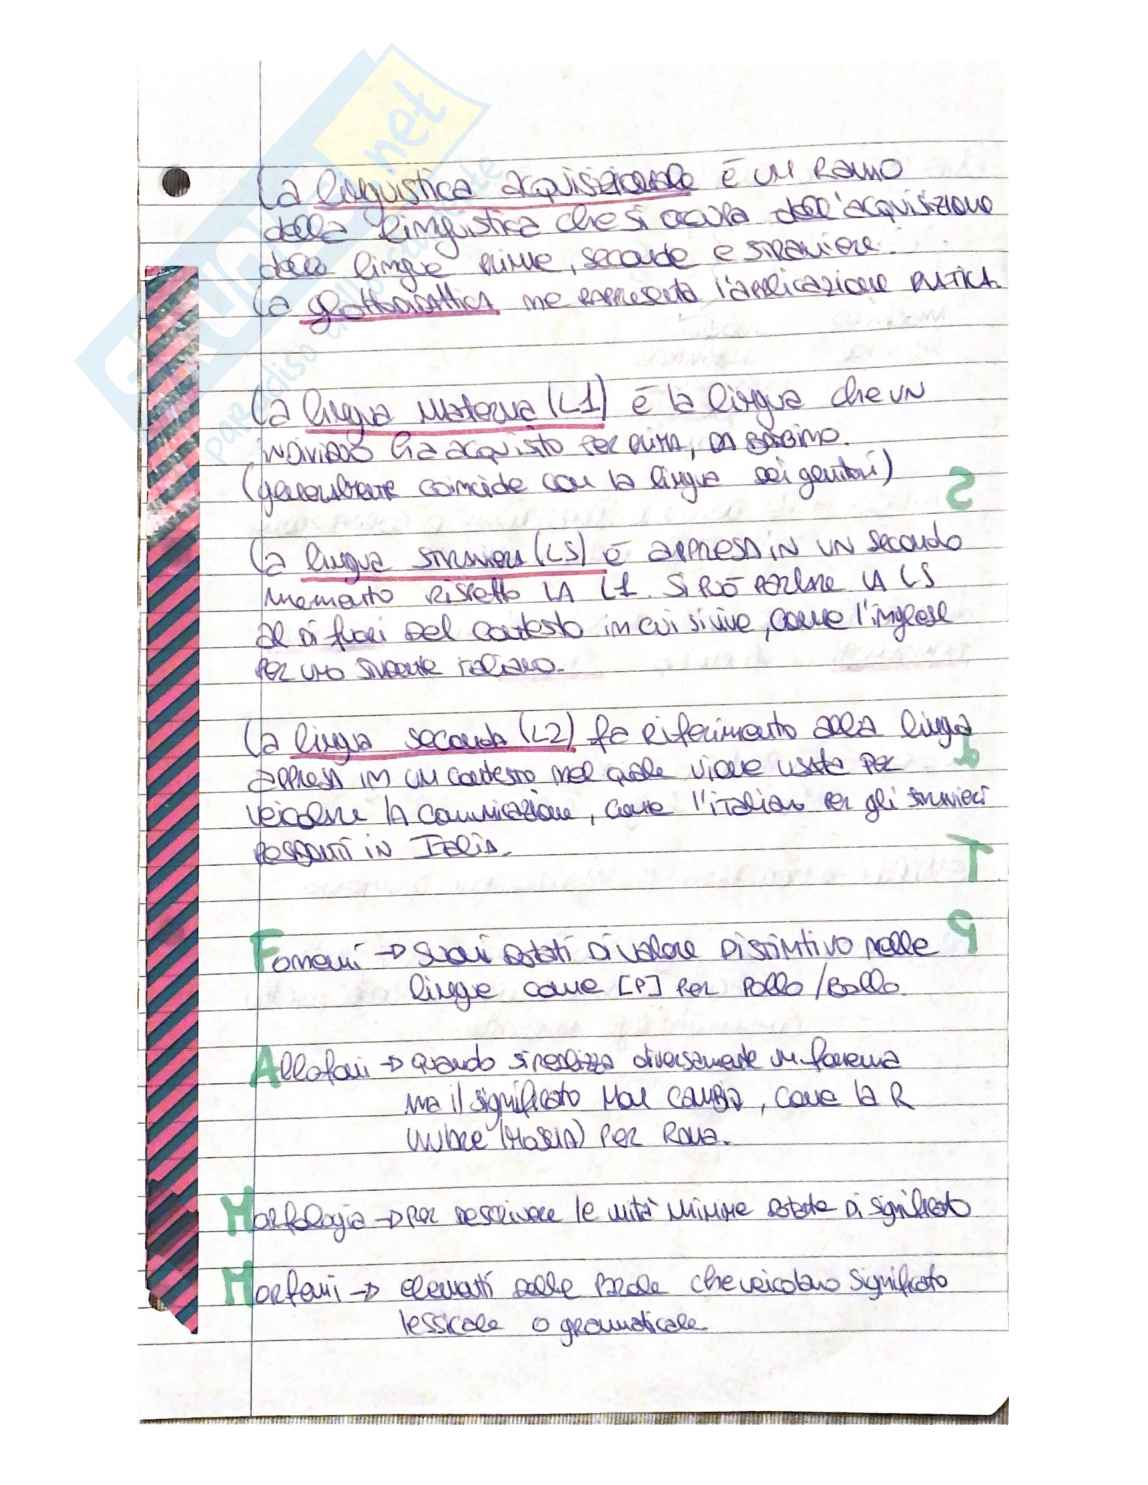 La linguistica acquisizionale è un ramo
della linguistica che si occupa dell'acquisizione
delle lingue prime, seconde e straniere.
La glottodidattica ne rappresenta l'applicazione pratica.
La lingua materna (L1) è la lingua che un
individuo ha acquisito per prima, da bambino.
(generalmente coincide con la lingua dei genitori)
La lingua straniera (LS) è appresa in un secondo
momento rispetto la L1. Si può parlare la LS
al di fuori del contesto in cui si vive, come l'inglese
per uno studente italiano.
La lingua seconda (L2) fa riferimento alla lingua
appresa in un contesto nel quale viene usata per
veicolare la comunicazione, come l'italiano per gli stranieri
residenti in Italia.
Fonemi → suoni dotati di valore distintivo nelle
lingue come [P] per Pollo/Bollo.
Allofoni → quando si realizza diversamente un fonema
ma il significato non cambia, come la R
per Rana.
Morfologia → per descrivere le unità minime dotate di significato
Morfemi → elementi delle parole che veicolano significato
lessicale o grammaticale